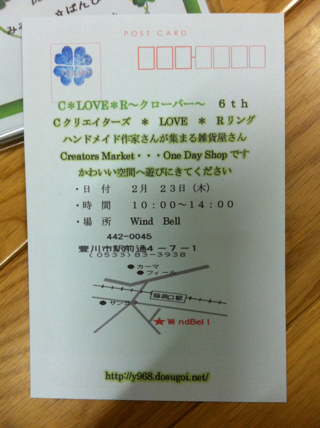 POST CARD
C＊LOVE＊R～クローバー～　６ｔｈ
Cクリエイターズ　＊　LOVE　＊　Rリング
ハンドメイド作家さんが集まる雑貨屋さん
Creators Market・・・One Day Shop です
かわいい空間へ遊びにきてください
・日　付　　２月　２３日（木）
・時　間　　１０：００～１４：００
・場　所　　Wind　Bell
442-0045
豊川市駅前通４－７－１
（０５３３）８３－３９３８
カーマ
フィール
サンヨネ
WindBell
http://y968.dosugoi.net/